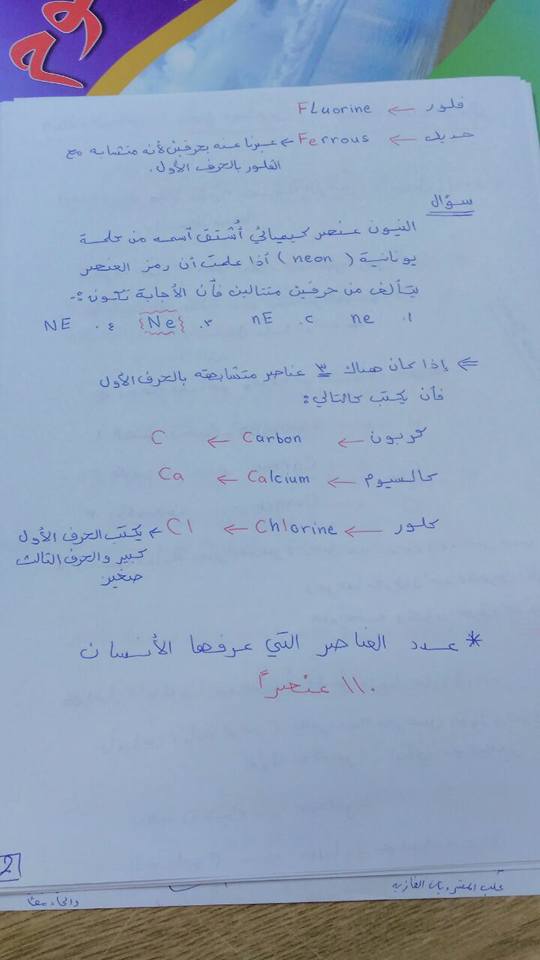 فلور ← FLuorine
حديد ← Ferrous ← عبرنا عنه بحرفين لأنه متشابه مع
الفلور بالحرف الأول.
سؤال
النيون عنصر كيميائي أُشتق أسمه من كلمة
يونانية (neon) أذا علمت أن رمز العنصر
يتألف من حرفين متتالين فأن الأجابة تكون :-
١. ne ٢. nE ٣. {Ne} ٤. NE
⇐ إذا كان هناك ٣ عناصر متشابهه بالحرف الأول
فأن يكتب كالتالي:
كربون ← Carbon ← C
كالسيوم ← Calcium ← Ca
كلور ← Chlorine ← Cl ← يكتب الحرف الأول
كبير والحرف الثالث
صغير
* عدد العناصر التي عرفها الأنسان
١١٠ عنصراً
2
علب المشروبات الغازية